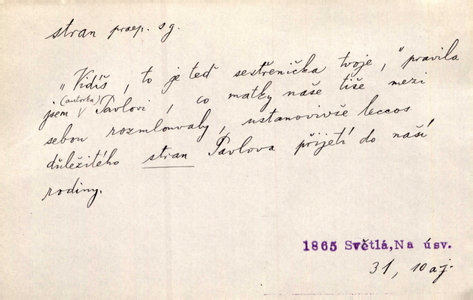 stran praep. sg.
„Vidíš, to je teď sestřenička tvoje,“ pravila
jsem (autorka) Pavlovi, co matky naše tiše mezi
sebou rozmlouvaly, ustanovivše leccos
důležitého stran Pavlova přijetí do naší
rodiny.
1865 Světlá, Na úsv.
31, 10 aj.